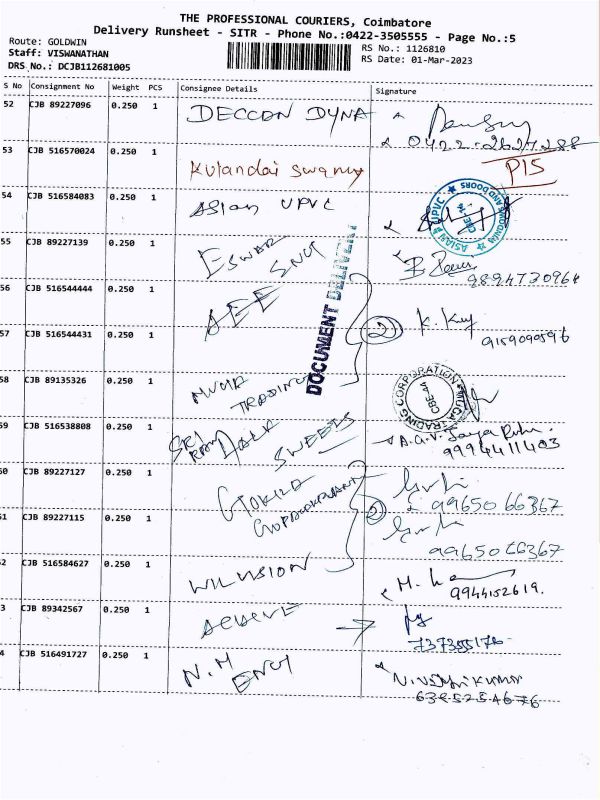 THE PROFESSIONAL COURIERS, Coimbatore
Delivery Runsheet - SITR - Phone No.:0422-3505555 - Page No.:5
Route: GOLDWIN
Staff: VISWANATHAN
DRS No.: DCJB112681005
RS No.: 1126810
RS Date: 01-Mar-2023
S No Consignment No Weight PCS Consignee Details Signature
52 CJB 89227096 0.250 1 DECCAN DYNA
0422-2627288
53 CJB 516570024 0.250 1 Kulandai Swamy P15
54 CJB 516584083 0.250 1 Asian UPVC
ASIAN UPVC WINDOWS AND DOORS
CBE-14
55 CJB 89227139 0.250 1 ESWAR
9894730964
DOCUMENT DELIVERY
56 CJB 516544444 0.250 1 AEE ENGG
2 K. Kuy
57 CJB 516544431 0.250 1
9159090596
58 CJB 89135326 0.250 1 TRADING
TRADING CORPORATION
CBE-44
59 CJB 516538808 0.250 1 SRI RAM SWEETS
9994411403
60 CJB 89227127 0.250 1 GOKILA
99650 66367
61 CJB 89227115 0.250 1 2
99650 66367
62 CJB 516584627 0.250 1 WILVISION
9944152619.
3 CJB 89342567 0.250 1
737355176
4 CJB 516491727 0.250 1 N.M ENGG
6395254676